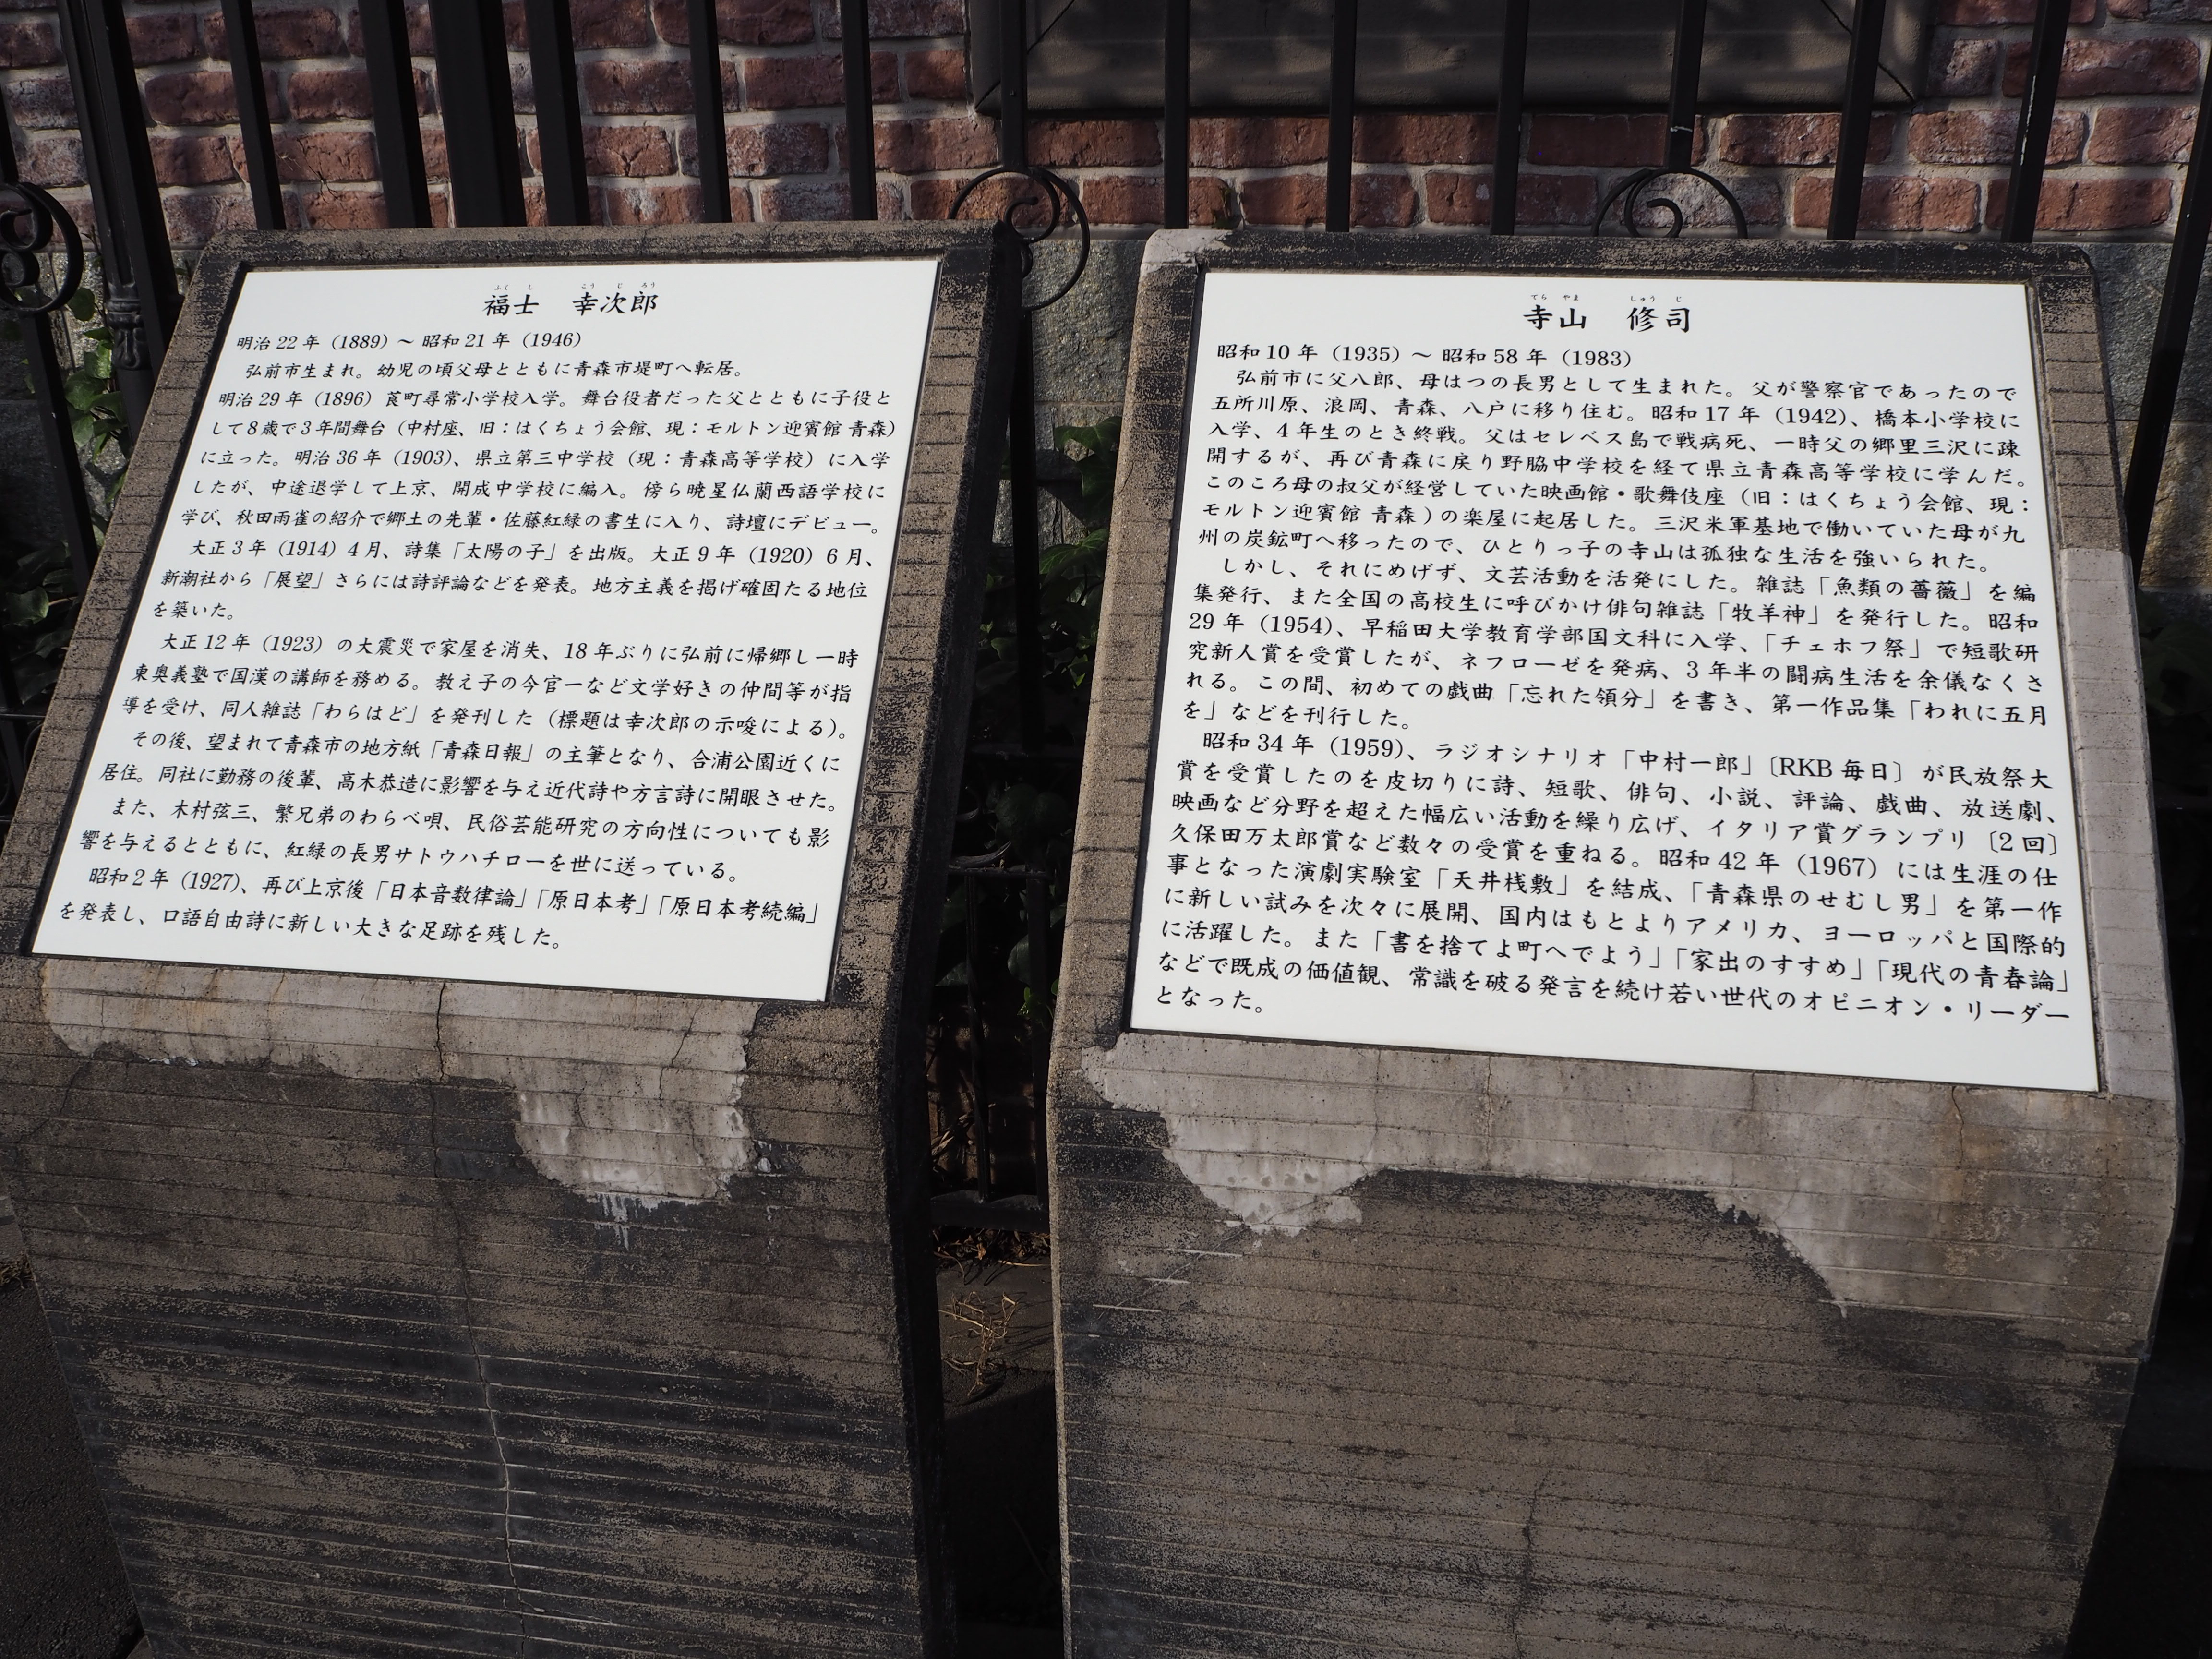 福士 幸次郎
ふくし こうじろう
明治22年（1889）～昭和21年（1946）
弘前市生まれ。幼児の頃父母とともに青森市堤町へ転居。
明治29年（1896）莨町尋常小学校入学。舞台役者だった父とともに子役と
して8歳で3年間舞台（中村座、旧：はくちょう会館、現：モルトン迎賓館 青森）
に立った。明治36年（1903）、県立第三中学校（現：青森高等学校）に入学
したが、中途退学して上京、開成中学校に編入。傍ら暁星仏蘭西語学校に
学び、秋田雨雀の紹介で郷土の先輩・佐藤紅緑の書生に入り、詩壇にデビュー。
大正3年（1914）4月、詩集「太陽の子」を出版。大正9年（1920）6月、
新潮社から「展望」さらには詩評論などを発表。地方主義を掲げ確固たる地位
を築いた。
大正12年（1923）の大震災で家屋を消失、18年ぶりに弘前に帰郷し一時
東奥義塾で国漢の講師を務める。教え子の今官一など文学好きの仲間等が指
導を受け、同人雑誌「わらはど」を発刊した（標題は幸次郎の示唆による）。
その後、望まれて青森市の地方紙「青森日報」の主筆となり、合浦公園近くに
居住。同社に勤務の後輩、高木恭造に影響を与え近代詩や方言詩に開眼させた。
また、木村弦三、繁兄弟のわらべ唄、民俗芸能研究の方向性についても影
響を与えるとともに、紅緑の長男サトウハチローを世に送っている。
昭和2年（1927）、再び上京後「日本音数律論」「原日本考」「原日本考続編」
を発表し、口語自由詩に新しい大きな足跡を残した。
寺山 修司
てらやま しゅうじ
昭和10年（1935）～昭和58年（1983）
弘前市に父八郎、母はつの長男として生まれた。父が警察官であったので
五所川原、浪岡、青森、八戸に移り住む。昭和17年（1942）、橋本小学校に
入学、4年生のとき終戦。父はセレベス島で戦病死、一時父の郷里三沢に疎
開するが、再び青森に戻り野脇中学校を経て県立青森高等学校に学んだ。
このころ母の叔父が経営していた映画館・歌舞伎座（旧：はくちょう会館、現：
モルトン迎賓館 青森）の楽屋に起居した。三沢米軍基地で働いていた母が九
州の炭鉱町へ移ったので、ひとりっ子の寺山は孤独な生活を強いられた。
しかし、それにめげず、文芸活動を活発にした。雑誌「魚類の薔薇」を編
集発行、また全国の高校生に呼びかけ俳句雑誌「牧羊神」を発行した。昭和
29年（1954）、早稲田大学教育学部国文科に入学、「チェホフ祭」で短歌研
究新人賞を受賞したが、ネフローゼを発病、3年半の闘病生活を余儀なくさ
れる。この間、初めての戯曲「忘れた領分」を書き、第一作品集「われに五月
を」などを刊行した。
昭和34年（1959）、ラジオシナリオ「中村一郎」〔RKB毎日〕が民放祭大
賞を受賞したのを皮切りに詩、短歌、俳句、小説、評論、戯曲、放送劇、
映画など分野を超えた幅広い活動を繰り広げ、イタリア賞グランプリ〔2回〕
久保田万太郎賞など数々の受賞を重ねる。昭和42年（1967）には生涯の仕
事となった演劇実験室「天井桟敷」を結成、「青森県のせむし男」を第一作
に新しい試みを次々に展開、国内はもとよりアメリカ、ヨーロッパと国際的
に活躍した。また「書を捨てよ町へでよう」「家出のすすめ」「現代の青春論」
などで既成の価値観、常識を破る発言を続け若い世代のオピニオン・リーダー
となった。